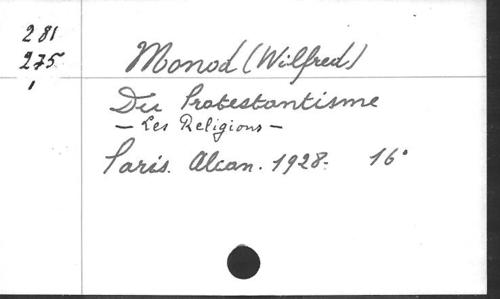 281
275
1
Monod (Wilfred)
Du Protestantisme
— Les Religions —
Paris. Alcan. 1928. 16°